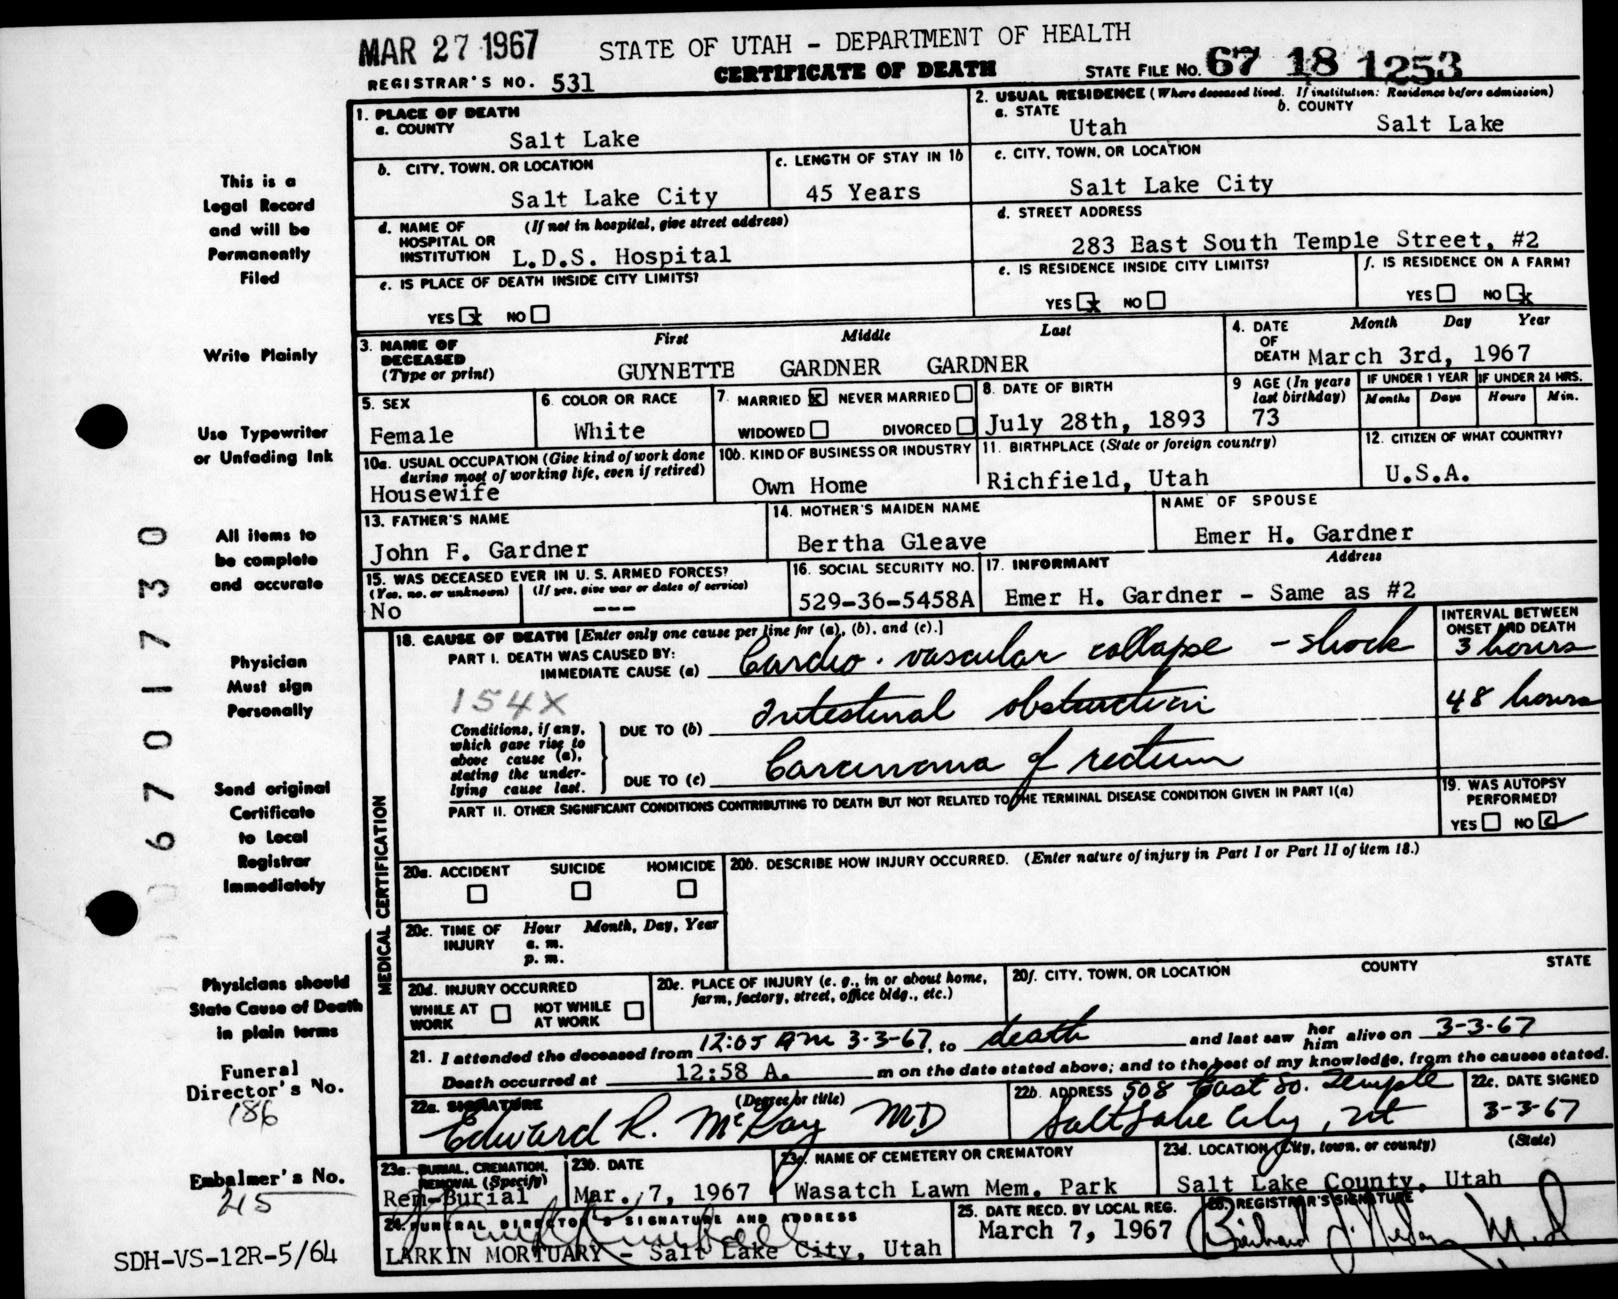 MAR 27 1967
STATE OF UTAH - DEPARTMENT OF HEALTH
CERTIFICATE OF DEATH
REGISTRAR'S NO. 531
STATE FILE NO. 67 18 1253
This is a
Legal Record
and will be
Permanently
Filed
Write Plainly
Use Typewriter
or Unfading Ink
All items to
be complete
and accurate
Physician
Must sign
Personally
Send original
Certificate
to Local
Registrar
Immediately
Physicians should
State Cause of Death
in plain terms
Funeral
Director's No.
186
Embalmer's No.
215
SDH-VS-12R-5/64
06701730
1. PLACE OF DEATH
a. COUNTY
Salt Lake
2. USUAL RESIDENCE (Where deceased lived. If institution: Residence before admission)
a. STATE
Utah
b. COUNTY
Salt Lake
b. CITY, TOWN, OR LOCATION
Salt Lake City
c. LENGTH OF STAY IN 1b
45 Years
c. CITY, TOWN, OR LOCATION
Salt Lake City
d. NAME OF HOSPITAL OR INSTITUTION
(If not in hospital, give street address)
L.D.S. Hospital
d. STREET ADDRESS
283 East South Temple Street, #2
e. IS PLACE OF DEATH INSIDE CITY LIMITS?
YES x NO
e. IS RESIDENCE INSIDE CITY LIMITS?
YES x NO
f. IS RESIDENCE ON A FARM?
YES NO x
3. NAME OF DECEASED (Type or print)
First Middle Last
GUYNETTE GARDNER GARDNER
4. DATE OF DEATH
Month Day Year
March 3rd, 1967
5. SEX
Female
6. COLOR OR RACE
White
7. MARRIED x NEVER MARRIED
WIDOWED DIVORCED
8. DATE OF BIRTH
July 28th, 1893
9 AGE (In years last birthday)
73
IF UNDER 1 YEAR
Months Days
IF UNDER 24 HRS.
Hours Min.
10a. USUAL OCCUPATION (Give kind of work done during most of working life, even if retired)
Housewife
10b. KIND OF BUSINESS OR INDUSTRY
Own Home
11. BIRTHPLACE (State or foreign country)
Richfield, Utah
12. CITIZEN OF WHAT COUNTRY?
U.S.A.
13. FATHER'S NAME
John F. Gardner
14. MOTHER'S MAIDEN NAME
Bertha Gleave
NAME OF SPOUSE
Emer H. Gardner
15. WAS DECEASED EVER IN U. S. ARMED FORCES?
(Yes, no, or unknown) (If yes, give war or dates of service)
No ---
16. SOCIAL SECURITY NO.
529-36-5458A
17. INFORMANT Address
Emer H. Gardner - Same as #2
18. CAUSE OF DEATH [Enter only one cause per line for (a), (b), and (c).]
INTERVAL BETWEEN ONSET AND DEATH
PART I. DEATH WAS CAUSED BY:
IMMEDIATE CAUSE (a) Cardio-vascular collapse - shock 3 hours
154X
Conditions, if any, which gave rise to above cause (a), stating the underlying cause last.
DUE TO (b) Intestinal obstruction 48 hours
DUE TO (c) Carcinoma of rectum
PART II. OTHER SIGNIFICANT CONDITIONS CONTRIBUTING TO DEATH BUT NOT RELATED TO THE TERMINAL DISEASE CONDITION GIVEN IN PART I(a)
19. WAS AUTOPSY PERFORMED?
YES NO
MEDICAL CERTIFICATION
20a. ACCIDENT SUICIDE HOMICIDE
20b. DESCRIBE HOW INJURY OCCURRED. (Enter nature of injury in Part I or Part II of item 18.)
20c. TIME OF INJURY
Hour Month, Day, Year
a. m.
p. m.
20d. INJURY OCCURRED
WHILE AT WORK NOT WHILE AT WORK
20e. PLACE OF INJURY (e. g., in or about home, farm, factory, street, office bldg., etc.)
20f. CITY, TOWN, OR LOCATION COUNTY STATE
21. I attended the deceased from 12:05 AM 3-3-67, to death and last saw her him alive on 3-3-67
Death occurred at 12:58 A. m on the date stated above; and to the best of my knowledge, from the causes stated.
22a. SIGNATURE (Degree or title)
Edward R. McKay MD
22b. ADDRESS 508 East So. Temple
Salt Lake City, Ut
22c. DATE SIGNED
3-3-67
23a. BURIAL, CREMATION, REMOVAL (Specify)
Rem-Burial
23b. DATE
Mar. 7, 1967
23c. NAME OF CEMETERY OR CREMATORY
Wasatch Lawn Mem. Park
23d. LOCATION (City, town, or county) (State)
Salt Lake County, Utah
24. FUNERAL DIRECTOR'S SIGNATURE AND ADDRESS
LARKIN MORTUARY - Salt Lake City, Utah
25. DATE RECD. BY LOCAL REG.
March 7, 1967
26. REGISTRAR'S SIGNATURE